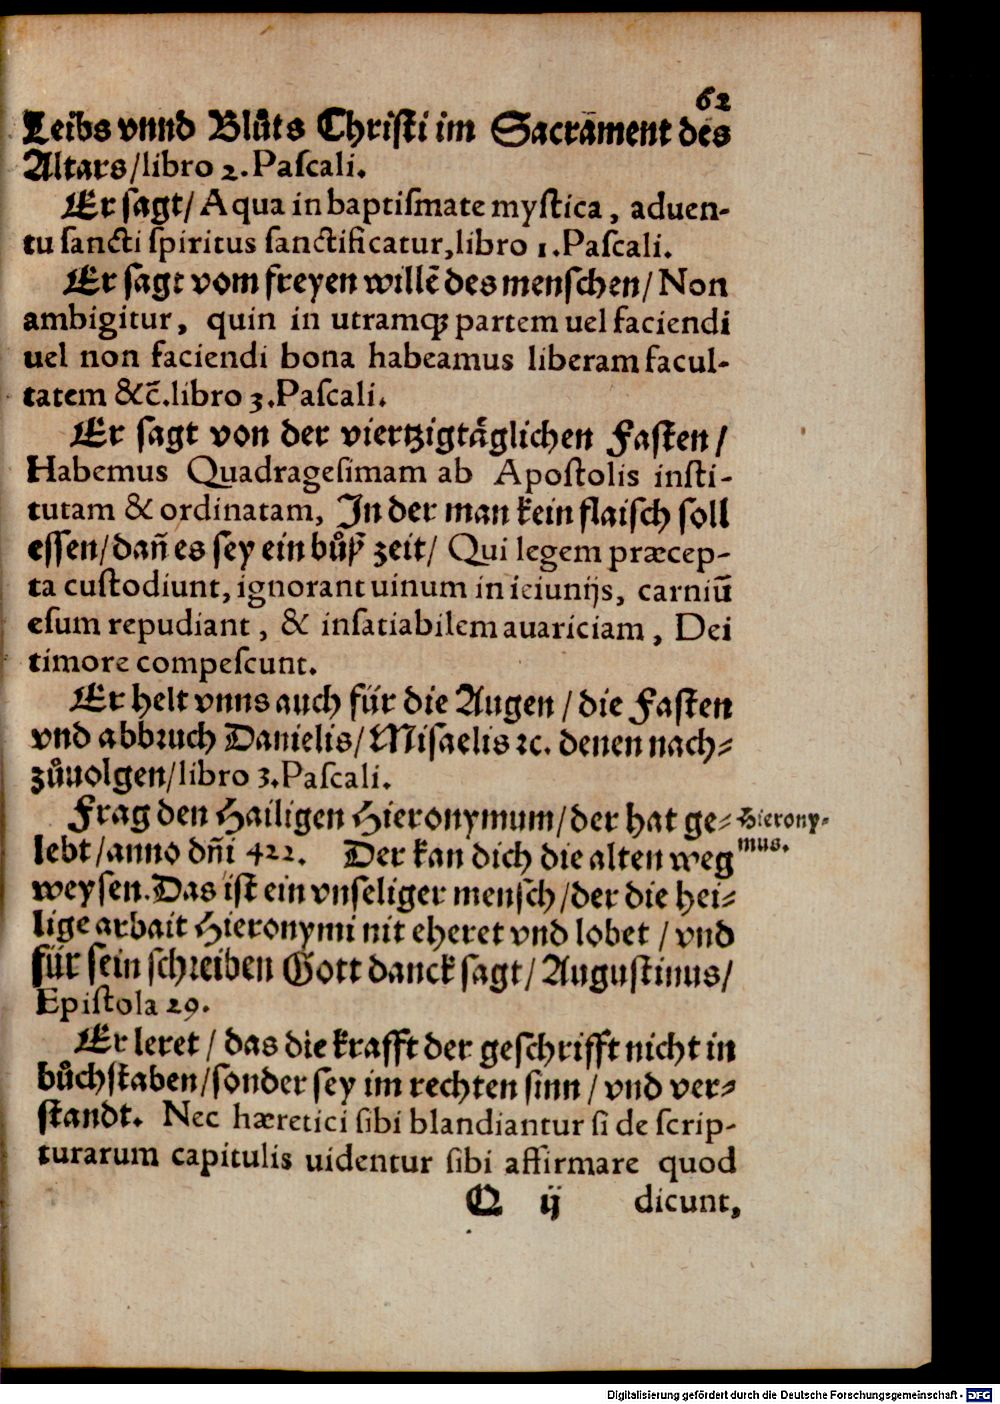 62
Leibs vnnd Blůts Christi im Sacrament des
Altars/libro 2. Pascali.
Er sagt/ Aqua in baptiſmate myſtica, aduen-
tu ſancti ſpiritus ſanctificatur, libro 1. Paſcali.
Er ſagt vom freyen willē des menſchen/ Non
ambigitur, quin in utramqꝫ partem uel faciendi
uel non faciendi bona habeamus liberam facul-
tatem &c̄. libro 3. Paſcali.
Er ſagt von der viertzigtäglichen Faſten/
Habemus Quadrageſimam ab Apoſtolis inſti-
tutam & ordinatam, In der man kein flaiſch ſoll
eſſen/ dañ es ſey ein bůß zeit/ Qui legem præcep-
ta cuſtodiunt, ignorant uinum in ieiunijs, carniū
eſum repudiant, & inſatiabilem auariciam, Dei
timore compeſcunt.
Er helt vnns auch für die Augen / die Faſten
vnd abbꝛuch Danielis/ Miſaelis ꝛc. denen nach-
zůuolgen/ libro 3. Paſcali.
Frag den Hailigen Hieronymum/ der hat ge-
Hierony-
mus.
lebt / anno dñi 422. Der kan dich die alten weg
weyſen. Das iſt ein vnſeliger menſch / der die hei-
lige arbait Hieronymi nit eheret vnd lobet / vnd
für ſein ſchꝛeiben Gott danck ſagt / Auguſtinus/
Epiſtola 29.
Er leret / das die krafft der geſchrifft nicht in
bůchſtaben/ ſonder ſey im rechten ſinn / vnd ver-
ſtandt. Nec hæretici ſibi blandiantur ſi de ſcrip-
turarum capitulis uidentur ſibi affirmare quod
Q ij dicunt,
Digitalisierung gefördert durch die Deutsche Forschungsgemeinschaft - DFG